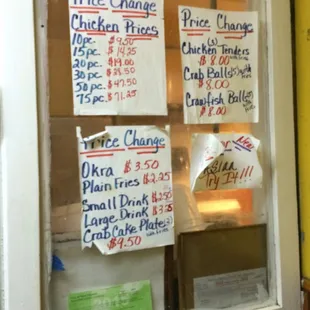 Price Change
Chicken Prices
10 pc. $9.50
15 pc. $14.25
20 pc. $19.00
30 pc. $28.50
50 pc. $47.50
75 pc. $71.25
Price Change
Chicken Tenders
$8.00
Crab Balls
$8.00
Crawfish Balls
$8.00
Price Change
Okra $3.50
Plain Fries $2.25
Small Drink
Large Drink
Crab Cake Plate
$9.50
Try It!!!